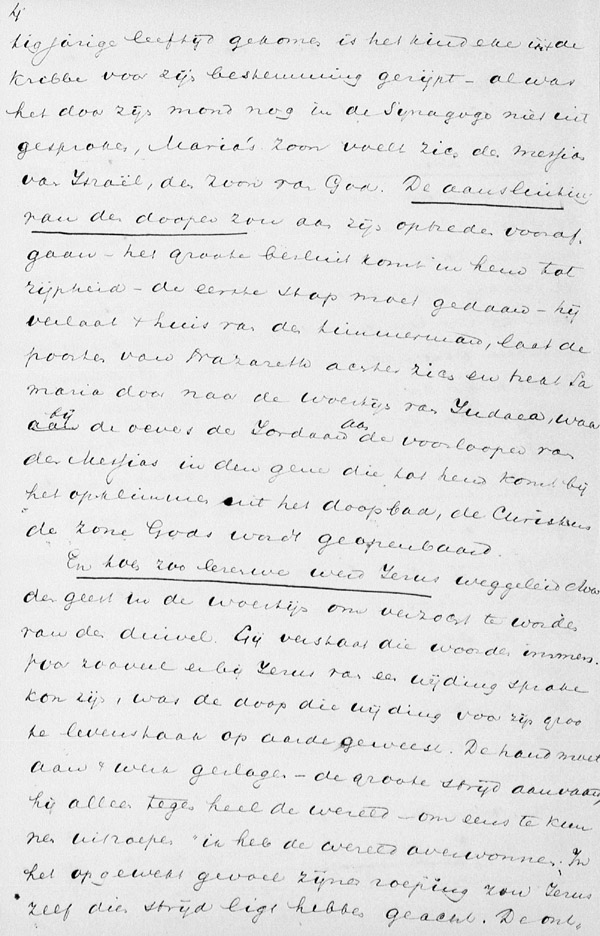 4
tigjarige leeftijd gekomen is het kindeke uit de
kribbe voor zijn bestemming gerijpt – al was
het door zijn mond nog in de Synagoge niet uit
gesproken, Maria's zoon voelt zich de Messias
van Israël, de zoon van God. De aansluiting
van den dooper zou aan zijn optreden vooraf.
gaan – het groote besluit komt in hem tot
rijpheid – de eerste stap moet gedaan – hij
verlaat 't huis van den timmerman, laat de
poorten van Nazareth achter zich en trekt Sa
maria door naar de woestijn van Judaea, waar
bij de oever de Jordaan aan de voorlooper van
den Messias in den gene die tot hem komt bij
het opklimmen uit het doopbad, de Christus
de zone Gods wordt geopenbaard.
En hoe zoo lezen we werd Jezus weggeleid door
den geest in de woestijn om verzocht te worden
van den duivel. Gij verstaat die woorden immers.
Voor zooveel er bij Jezus van een wijding sprake
kon zijn, was de doop die wijding voor zijn groo
te levenstaak op aarde geweest. De hand moet
aan 't werk geslagen – de groote strijd aanvaard
hij alleen tegen heel de wereld – om eens te kun
nen uitroepen "ik heb de wereld overwonnen." In
het opgewekt gevoel zijner roeping zou Jezus
zelf dien strijd ligt hebben geacht. De ont-